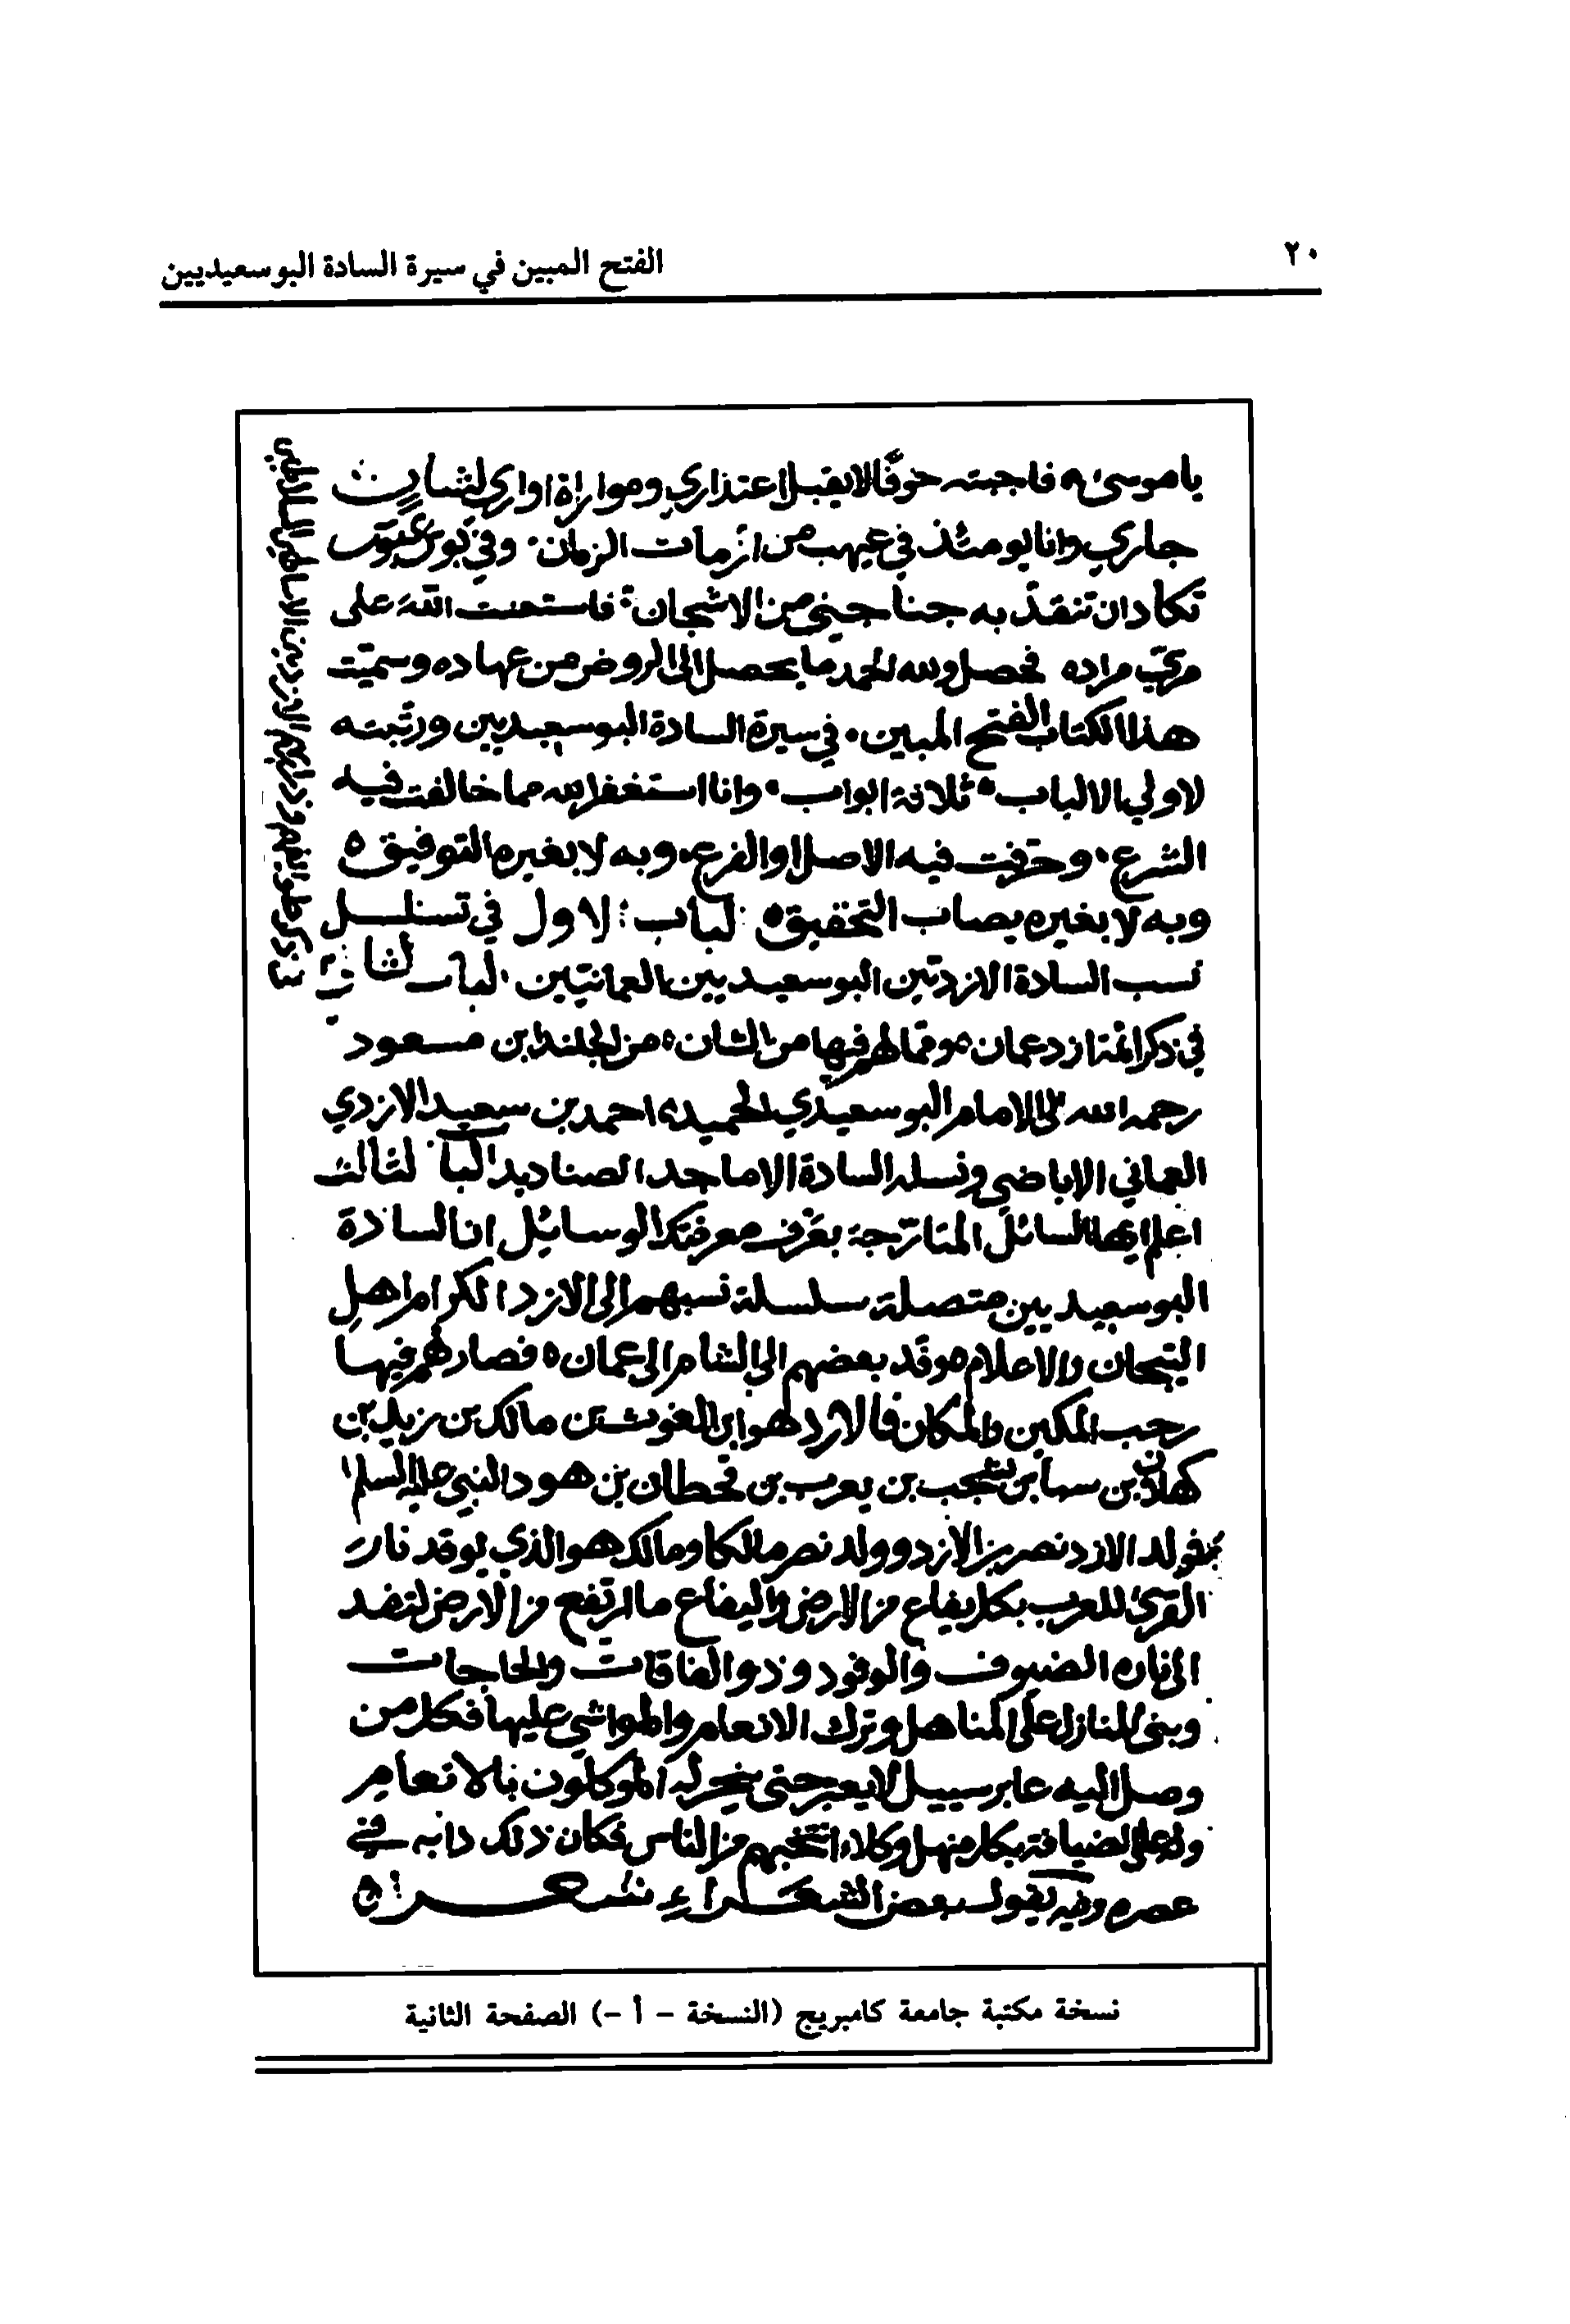 ٢٠
الفتح المبين في سيرة السادة البوسعيديين
ياموسى فاجبته خوفًا لا يقبل اعتذاري ومواراة اواري
جاري وانا يومئذ في غيهب من ازمات الزمان وفي
تكاد ان تنقدّ به جناجني من الاشجان فاستعنت الله على
مراده فحصل ولله الحمد ما يحصل الى الروض من عهاده وسميّت
هذا الكتاب الفتح المبين في سيرة السادة البوسعيديين ورتّبته
لاولي الالباب ثلاثة ابواب وانا استغفر الله مما خالفت فيه
الشرع وحرّفت فيه الاصل والفرع وبه لا بغيره التوفيق
وبه لا بغيره يصاب التحقيق الباب الاول في تسلسل
نسب السادة الازديّين البوسعيديين العمانيّين الباب الثاني
في ذكر ائمة ازد عمان وما لهم فيها من الشان من الجلندا بن مسعود
رحمه الله الى الامام البوسعيدي الحميد احمد بن سعيد الازدي
العماني الاباضي ونسله السادة الاماجد الصناديد الباب الثالث
اعلم ايها السائل المتارّجة بعَرْف معرفتك الوسائل ان السادة
البوسعيديين متصلة سلسلة نسبهم الى الازد الكرام اهل
التيجان والاعلام وقد بعضهم الى الشام الى عمان فصار لهم فيها
رحب المكين والمكان فالازد هو ابن الغوث بن مالك بن زيد بن
كهلان بن سبا بن يشجب بن يعرب بن قحطان بن هود النبي عليه السلم
فولد الازد نصر بن الازد وولد نصر مالكا ومالك هو الذي يوقد نار
القرى للعرب بكل يفاع من الارض واليفاع ما ارتفع من الارض لتفد
الى ناره الضيوف والوفود وذو الفاقات والحاجات
وبنى المنازل على المناهل وترك الانعام والمواشي عليها فكل من
وصل اليه عابر سبيل لا يعبر حتى ينحر له الموكلون بالانعام
وله على الضيافة بكل منهل وكلاء انتخبهم من الناس فكان ذلك دابه في
عصره وفيه يقول بعض الشعراء شعرا
نسخة مكتبة جامعة كامبريج (النسخة - أ -) الصفحة الثانية